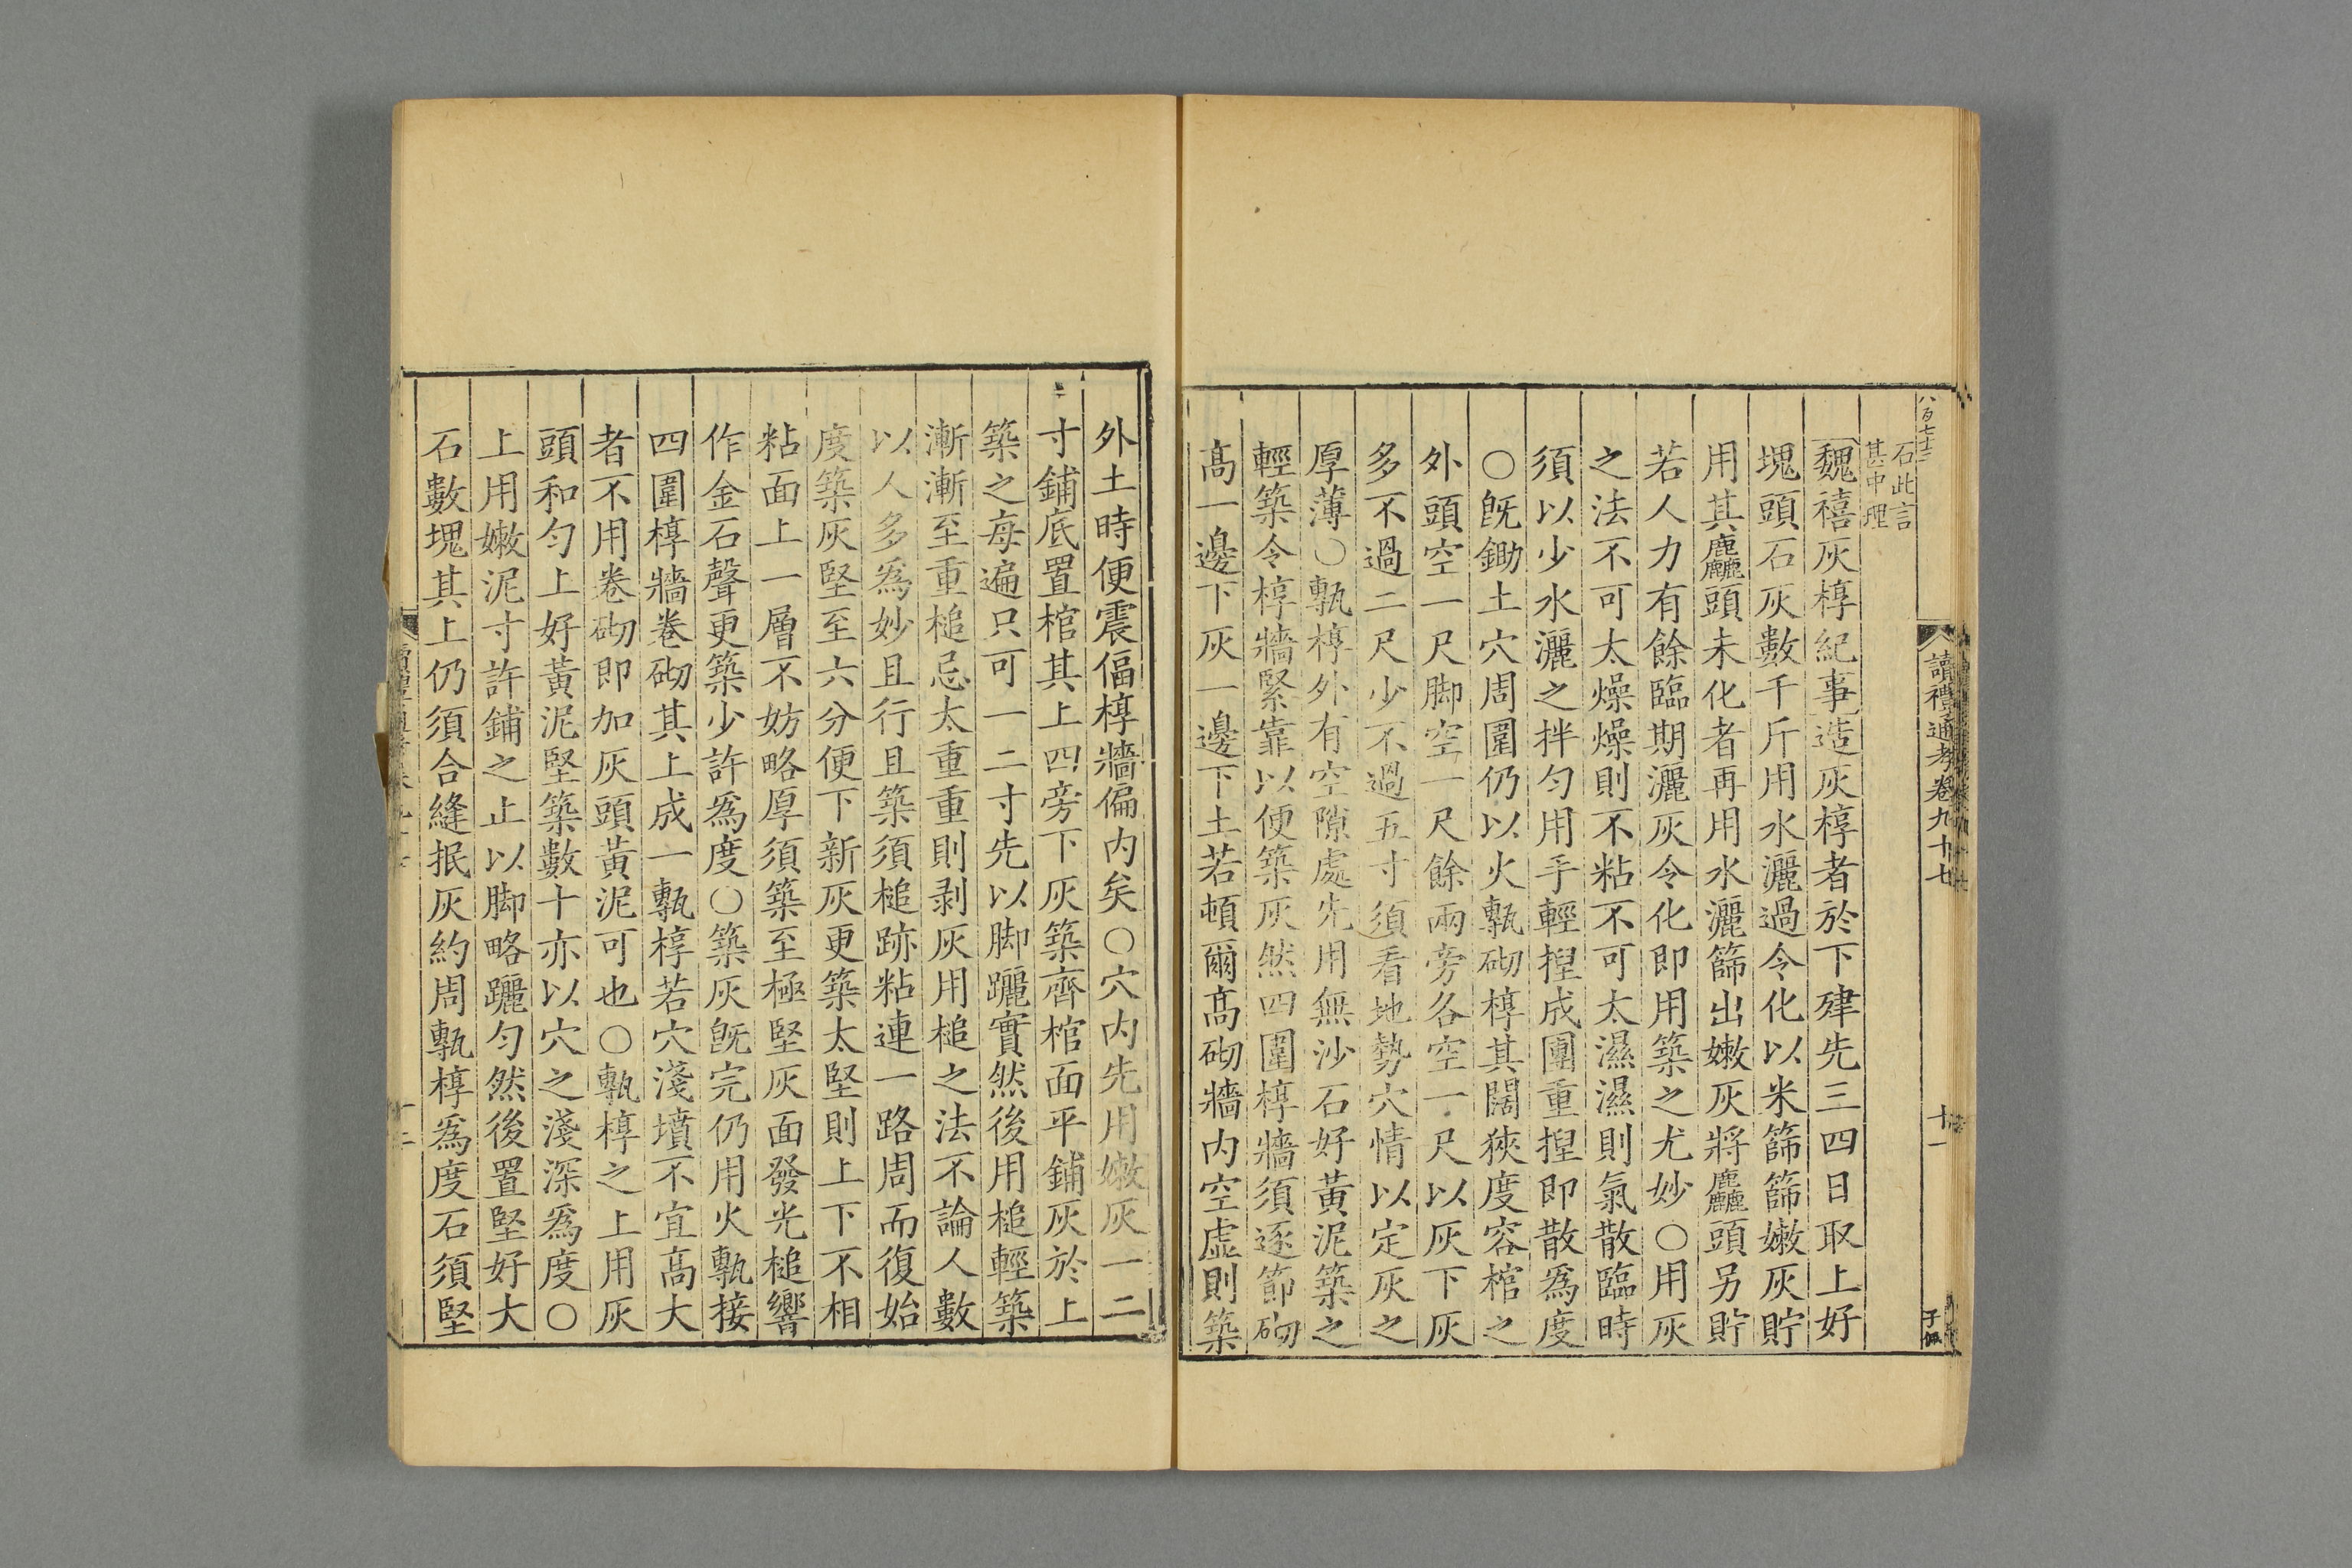 八百七十三
讀禮通考卷九十七
十一
石此言
甚中理
魏禧灰椁紀事造灰椁者於下肂先三四日取上好
塊頭石灰數千斤用水灑過令化以米篩篩嫩灰貯
用其麤頭未化者再用水灑篩出嫩灰將麤頭另貯
若人力有餘臨期灑灰令化即用築之尤妙○用灰
之法不可太燥燥則不粘不可太濕濕則氣散臨時
須以少水灑之拌匀用手輕揑成團重揑即散爲度
○旣鋤土穴周圍仍以火甎砌椁其闊狹度容棺之
外頭空一尺脚空一尺餘兩旁各空一尺以灰下灰
多不過二尺少不過五寸須看地勢穴情以定灰之
厚薄○甎椁外有空隙處先用無沙石好黃泥築之
輕築令椁牆緊靠以便築灰然四圍椁牆須逐節砌
髙一邊下灰一邊下土若頓爾髙砌牆内空虚則築
外土時便震偪椁牆偏内矣○穴内先用嫩灰一二
寸鋪底置棺其上四旁下灰築齊棺面平鋪灰於上
築之每遍只可一二寸先以脚躧實然後用槌輕築
漸漸至重槌忌太重重則剥灰用槌之法不論人數
以人多爲妙且行且築須槌跡粘連一路周而復始
度築灰堅至六分便下新灰更築太堅則上下不相
粘面上一層不妨略厚須築至極堅灰面發光槌響
作金石聲更築少許爲度○築灰旣完仍用火甎接
四圍椁牆卷砌其上成一甎椁若穴淺墳不宜髙大
者不用卷砌即加灰頭黃泥可也○甎椁之上用灰
頭和匀上好黃泥堅築數十亦以穴之淺深爲度○
上用嫩泥寸許鋪之止以脚略躧匀然後置堅好大
石數塊其上仍須合縫抿灰約周甎椁爲度石須堅